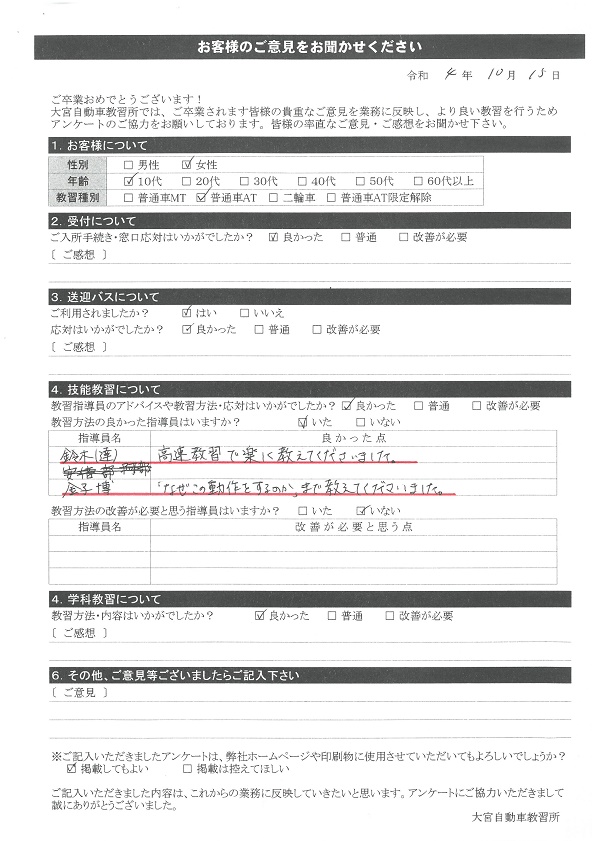 お客様のご意見をお聞かせください
令和 4 年 10 月 15 日
ご卒業おめでとうございます！
大宮自動車教習所では、ご卒業されます皆様の貴重なご意見を業務に反映し、より良い教習を行うため
アンケートのご協力をお願いしております。皆様の率直なご意見・ご感想をお聞かせ下さい。
1. お客様について
性別 □ 男性 ☑ 女性
年齢 ☑ 10代 □ 20代 □ 30代 □ 40代 □ 50代 □ 60代以上
教習種別 □ 普通車MT ☑ 普通車AT □ 二輪車 □ 普通車AT限定解除
2. 受付について
ご入所手続き・窓口応対はいかがでしたか？ ☑ 良かった □ 普通 □ 改善が必要
〔 ご感想 〕
3. 送迎バスについて
ご利用されましたか？ ☑ はい □ いいえ
応対はいかがでしたか？ ☑ 良かった □ 普通 □ 改善が必要
〔 ご感想 〕
4. 技能教習について
教習指導員のアドバイスや教習方法・応対はいかがでしたか？ ☑ 良かった □ 普通 □ 改善が必要
教習方法の良かった指導員はいますか？ ☑ いた □ いない
指導員名 良かった点
鈴木(達) 高速教習で楽しく教えてくださいました。
金子博 「なぜこの動作をするのか」まで教えてくださいました。
教習方法の改善が必要と思う指導員はいますか？ □ いた ☑ いない
指導員名 改善が必要と思う点
4. 学科教習について
教習方法・内容はいかがでしたか？ ☑ 良かった □ 普通 □ 改善が必要
〔 ご感想 〕
6. その他、ご意見等ございましたらご記入下さい
〔 ご意見 〕
※ご記入いただきましたアンケートは、弊社ホームページや印刷物に使用させていただいてもよろしいでしょうか？
☑ 掲載してもよい □ 掲載は控えてほしい
ご記入いただきました内容は、これからの業務に反映していきたいと思います。アンケートにご協力いただきまして
誠にありがとうございました。
大宮自動車教習所